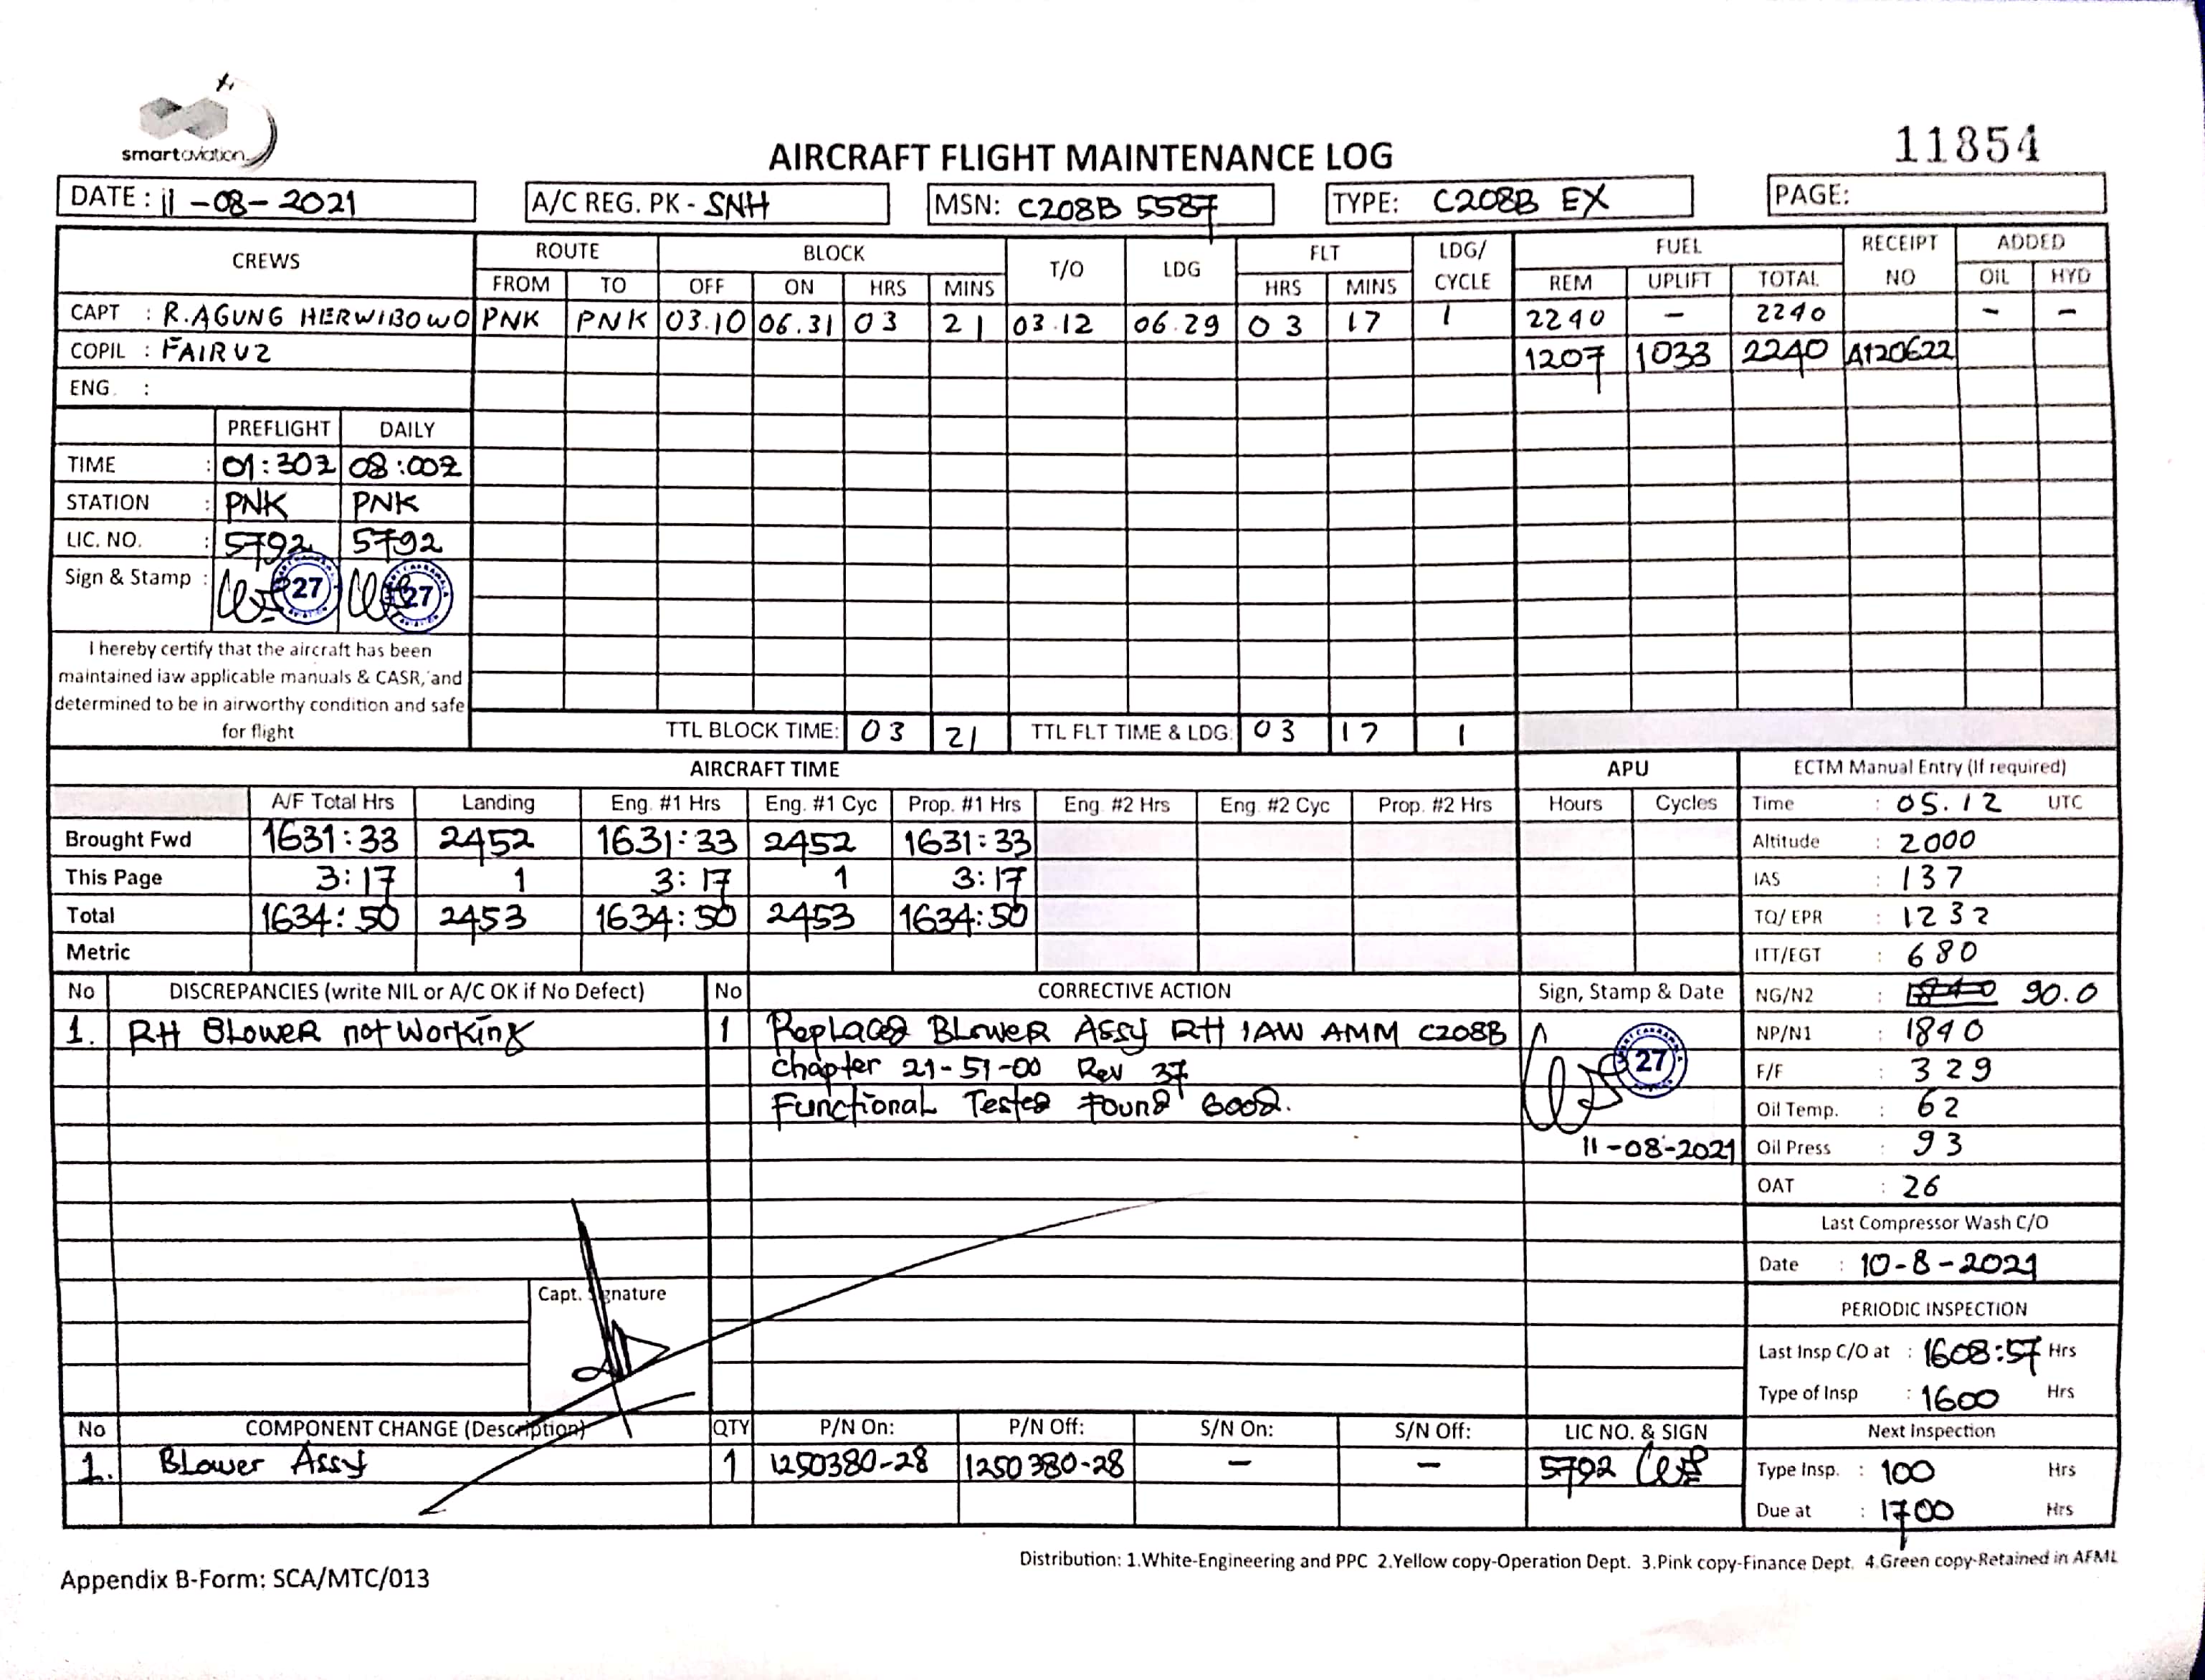 smart aviation
AIRCRAFT FLIGHT MAINTENANCE LOG
11854
DATE : 11-08-2021
A/C REG. PK - SNH
MSN: C208B 5587
TYPE: C208B EX
PAGE:
CREWS ROUTE BLOCK T/O LDG FLT LDG/ CYCLE FUEL RECEIPT NO ADDED
FROM TO OFF ON HRS MINS HRS MINS REM UPLIFT TOTAL OIL HYD
CAPT : R.AGUNG HERWIBOWO PNK PNK 03.10 06.31 03 21 03.12 06.29 03 17 1 2240 - 2240 - -
COPIL : FAIRUZ 1207 1033 2240 A120622
ENG. :
PREFLIGHT DAILY
TIME : 01:30Z 08:00Z
STATION : PNK PNK
LIC. NO. : 5792 5792
Sign & Stamp : 27 27
I hereby certify that the aircraft has been
maintained iaw applicable manuals & CASR, and
determined to be in airworthy condition and safe
for flight
TTL BLOCK TIME: 03 21 TTL FLT TIME & LDG: 03 17 1
AIRCRAFT TIME APU ECTM Manual Entry (If required)
A/F Total Hrs Landing Eng. #1 Hrs Eng. #1 Cyc Prop. #1 Hrs Eng. #2 Hrs Eng. #2 Cyc Prop. #2 Hrs Hours Cycles Time : 05.12 UTC
Brought Fwd 1631:33 2452 1631:33 2452 1631:33 Altitude : 2000
This Page 3:17 1 3:17 1 3:17 IAS : 137
Total 1634:50 2453 1634:50 2453 1634:50 TQ/ EPR : 1232
Metric ITT/EGT : 680
No DISCREPANCIES (write NIL or A/C OK if No Defect) No CORRECTIVE ACTION Sign, Stamp & Date NG/N2 : 90.0
1. RH BLOWER not Working 1 Replaced BLOWER Assy RH IAW AMM C208B NP/N1 : 1840
Chapter 21-51-00 Rev 37 27 F/F : 329
Functional Tested found Good. Oil Temp. : 62
11-08-2021 Oil Press : 93
OAT : 26
Last Compressor Wash C/O
Date : 10-8-2021
Capt. Signature
PERIODIC INSPECTION
Last Insp C/O at : 1608:57 Hrs
Type of Insp : 1600 Hrs
No COMPONENT CHANGE (Description) QTY P/N On: P/N Off: S/N On: S/N Off: LIC NO. & SIGN Next Inspection
1. Blower Assy 1 1250380-28 1250380-28 - - 5792 Type Insp. : 100 Hrs
Due at : 1700 Hrs
Distribution: 1.White-Engineering and PPC 2.Yellow copy-Operation Dept. 3.Pink copy-Finance Dept. 4.Green copy-Retained in AFML
Appendix B-Form: SCA/MTC/013